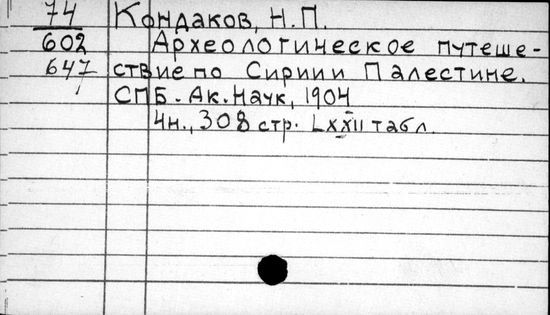 74 Кондаков, Н.П.
602 Археологическое путеше-
647 ствие по Сирии и Палестине.
СПБ. Ак. Наук, 1904
4н., 308 стр. LXXII табл.